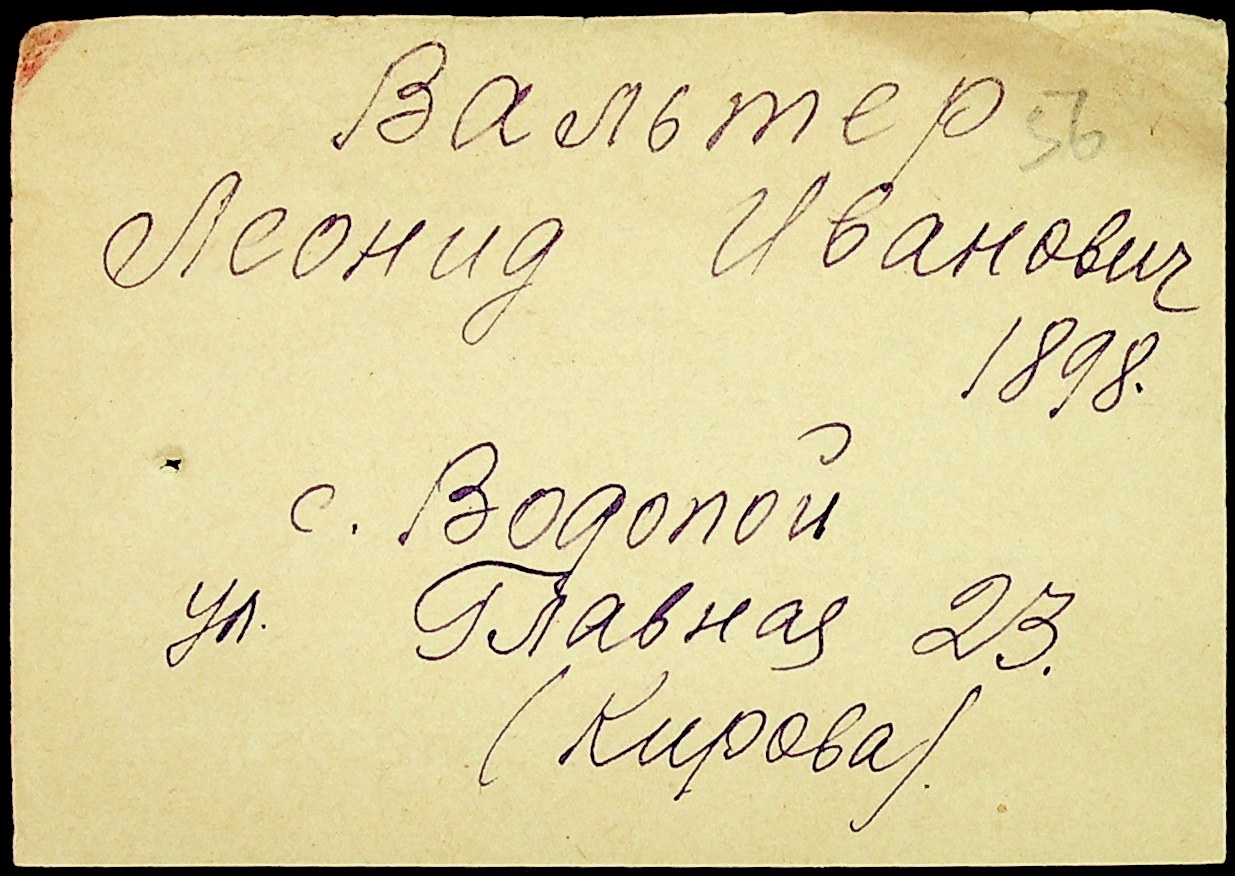 Вальтер 56
Леонид Иванович
1898.
с. Водопой
ул. Главная 23.
(Кирова).